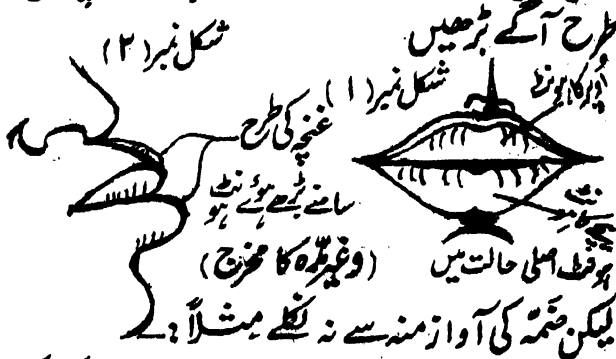 طرح آگے بڑھیں
شکل نمبر (۱)
شکل نمبر (۲)
اُوپر کا ہونٹ
غنچہ کی طرح
سامنے بڑھے ہوئے ہونٹ
نیچے
ہونٹ اصلی حالت میں
(وغیرہ کا مخرج)
لیکن ضمّہ کی آواز منہ سے نہ نکلے مثلاً :